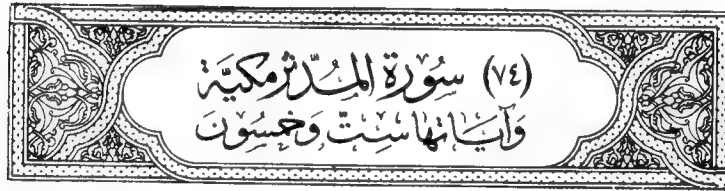 (٧٤) سُورَة المُدَّثِّر مَكِيَّة
وَآيَاتهَا سِتّ وَخَمسُونَ